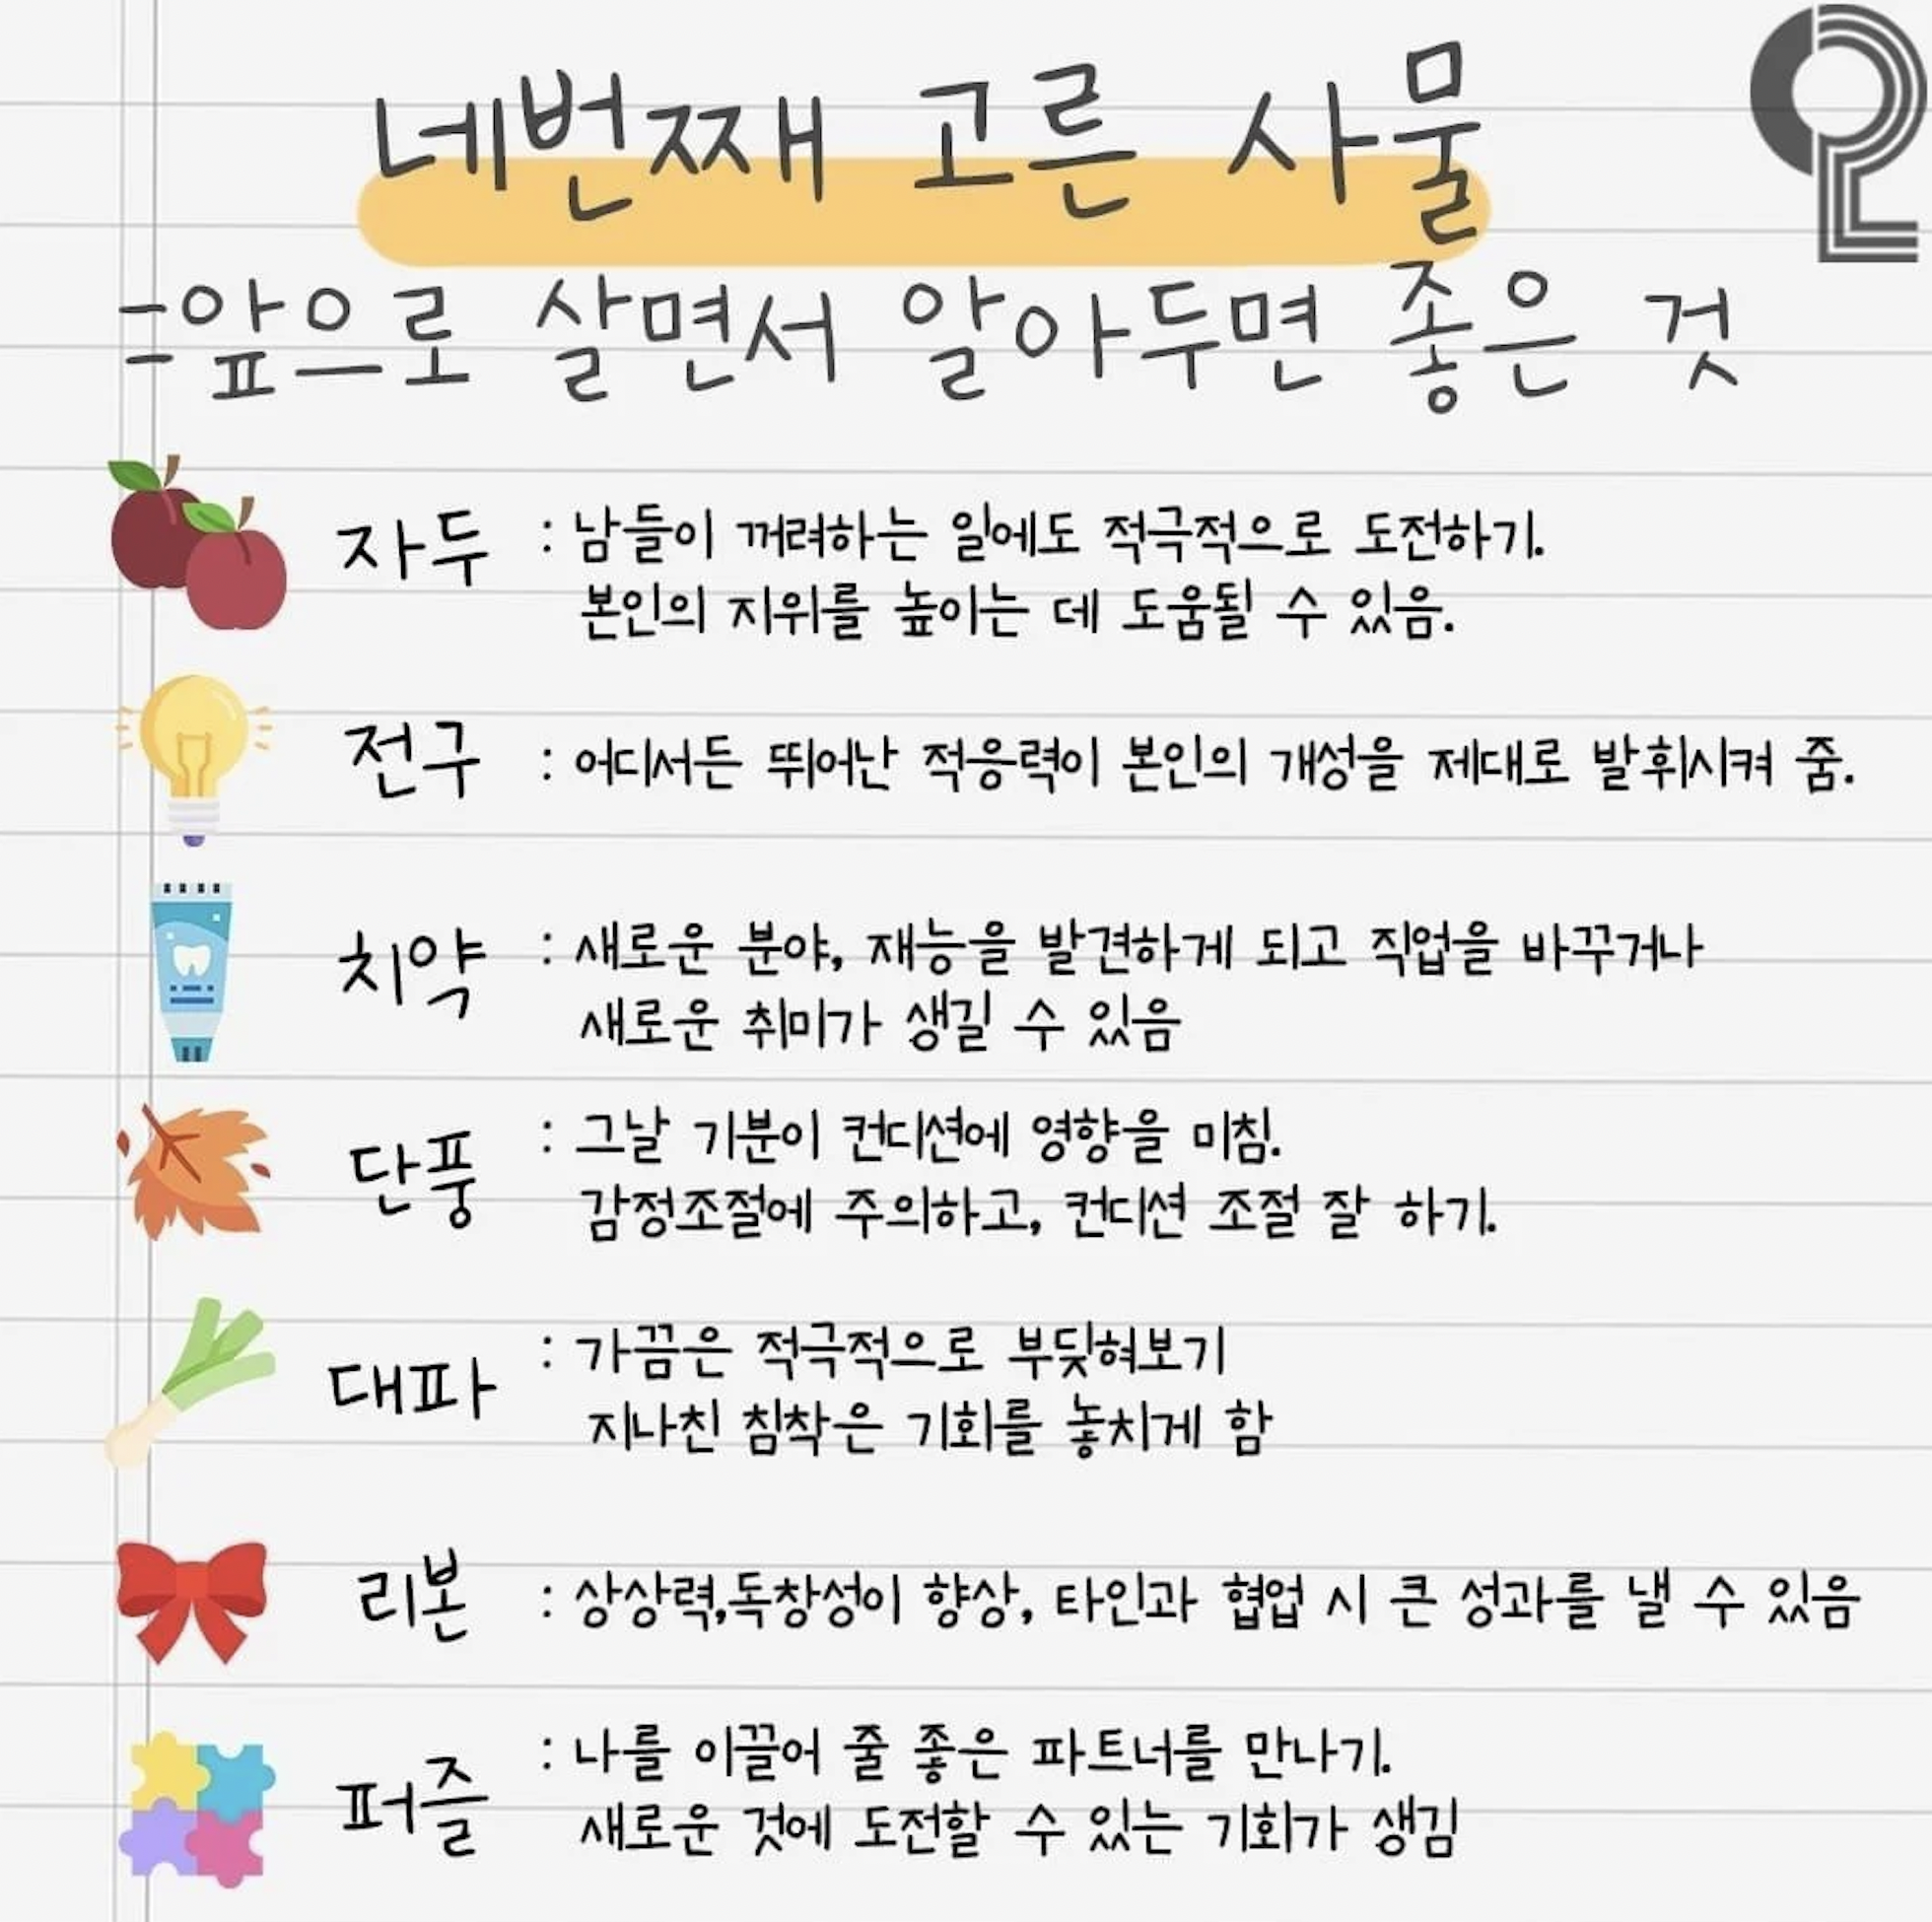 네번째 고른 사물
=앞으로 살면서 알아두면 좋은 것
자두 : 남들이 꺼려하는 일에도 적극적으로 도전하기.
본인의 지위를 높이는 데 도움될 수 있음.
전구 : 어디서든 뛰어난 적응력이 본인의 개성을 제대로 발휘시켜 줌.
치약 : 새로운 분야, 재능을 발견하게 되고 직업을 바꾸거나
새로운 취미가 생길 수 있음
단풍 : 그날 기분이 컨디션에 영향을 미침.
감정조절에 주의하고, 컨디션 조절 잘 하기.
대파 : 가끔은 적극적으로 부딪혀보기
지나친 침착은 기회를 놓치게 함
리본 : 상상력,독창성이 향상, 타인과 협업 시 큰 성과를 낼 수 있음
퍼즐 : 나를 이끌어 줄 좋은 파트너를 만나기.
새로운 것에 도전할 수 있는 기회가 생김